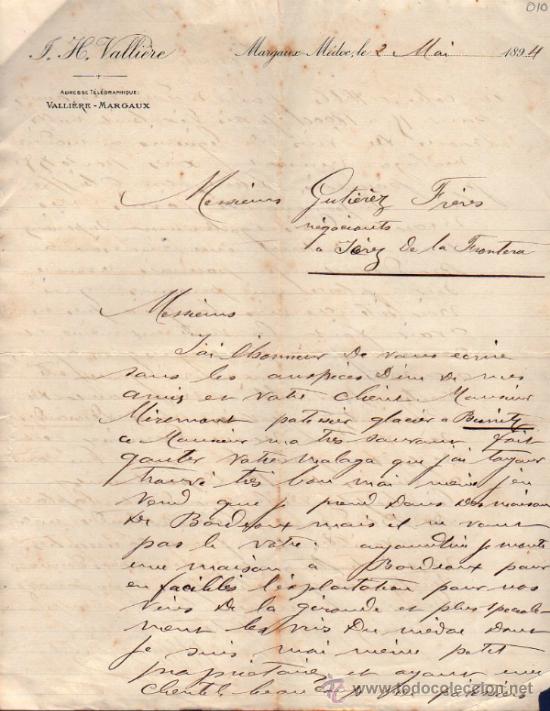 010
J. H. Vallière
Margaux-Médoc, le 2 Mai 1894
ADRESSE TÉLÉGRAPHIQUE:
VALLIÈRE-MARGAUX
Messieurs Gutierez Frères
négociants
a Jerez de la Frontera
Messieurs
J'ai l'honneur de vous écrire
sous les auspices d'un de mes
amis et votre client Monsieur
Miremont patissier glacier a Biarritz
ce Monsieur m'a très souvent fait
gouter votre malaga que j'ai toujour
trouvé très bon moi meme j'en
vend que je prend dans des maison
de Bordeaux mais il ne vaut
pas le votre. aujourdhui je monte
une maison a Bordeaux pour
en faciliter l'exploitation pour nos
vins de la gironde et plus speciale-
ment les vins du médoc dont
je suis moi meme petit
propriétaire et ayant une
clientel beau
www.todocoleccion.net